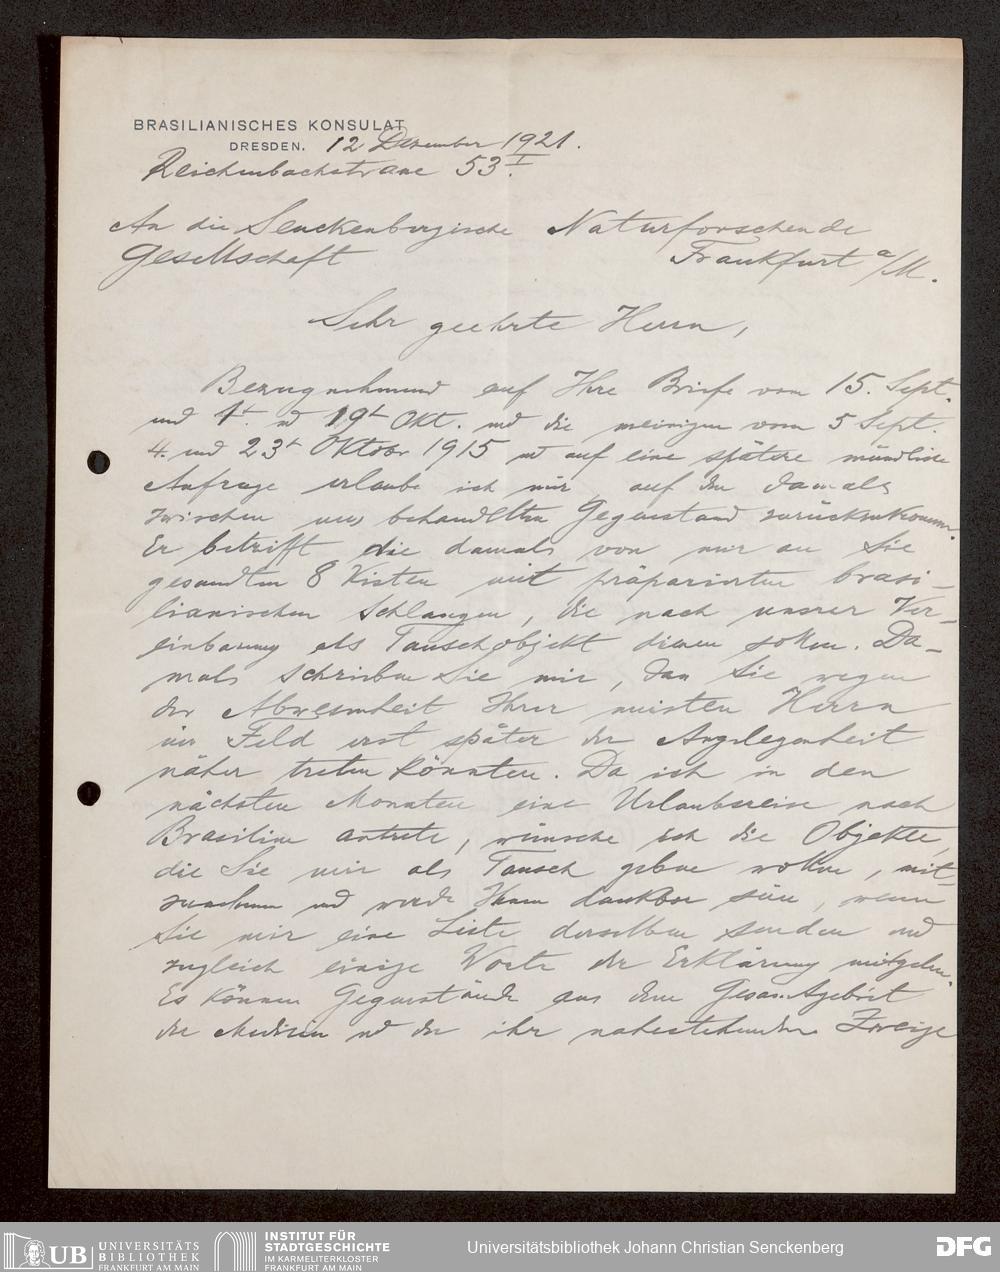 BRASILIANISCHES KONSULAT
DRESDEN. 12 Dezember 1921.
Reichenbachstrasse 53 I.
An die Senckenbergische Naturforschende
Gesellschaft Frankfurt a/M.
Sehr geehrte Herrn,
Bezugnehmend auf Ihre Briefe vom 15. Sept.
und 1t. ud 19t Okt. und die meinigen vom 5 Sept.
4. und 23t Oktobr 1915 ud auf eine spätere mündliche
Anfrage erlaube ich mir, auf den damals
zwischen uns behandelten Gegenstand zurückzukommen.
Er betrifft die damals von mir an Sie
gesandten 8 Kisten mit präparierten brasi-
lianischen Schlangen, die nach unsrer Ver-
einbarung als Tauschobjekt dienen sollen. Da-
mals schrieben Sie mir, dass Sie wegen
der Abwesenheit Ihrer meisten Herrn
im Feld erst später der Angelegenheit
näher treten könnten. Da ich in den
nächsten Monaten eine Urlaubsreise nach
Brasilien antrete, wünsche ich die Objekte,
die Sie mir als Tausch geben wollen, mit-
zunehmen ud werde Ihnen dankbar sein, wenn
Sie mir eine Liste derselben senden und
zugleich einige Worte der Erklärung mitgeben.
Es können Gegenstände aus dem Gesamtgebiet
der Medizin ud der ihr nahestehenden Zweige
UB UNIVERSITÄTS
BIBLIOTHEK
FRANKFURT AM MAIN
INSTITUT FÜR
STADTGESCHICHTE
IM KARMELITERKLOSTER
FRANKFURT AM MAIN
Universitätsbibliothek Johann Christian Senckenberg
DFG